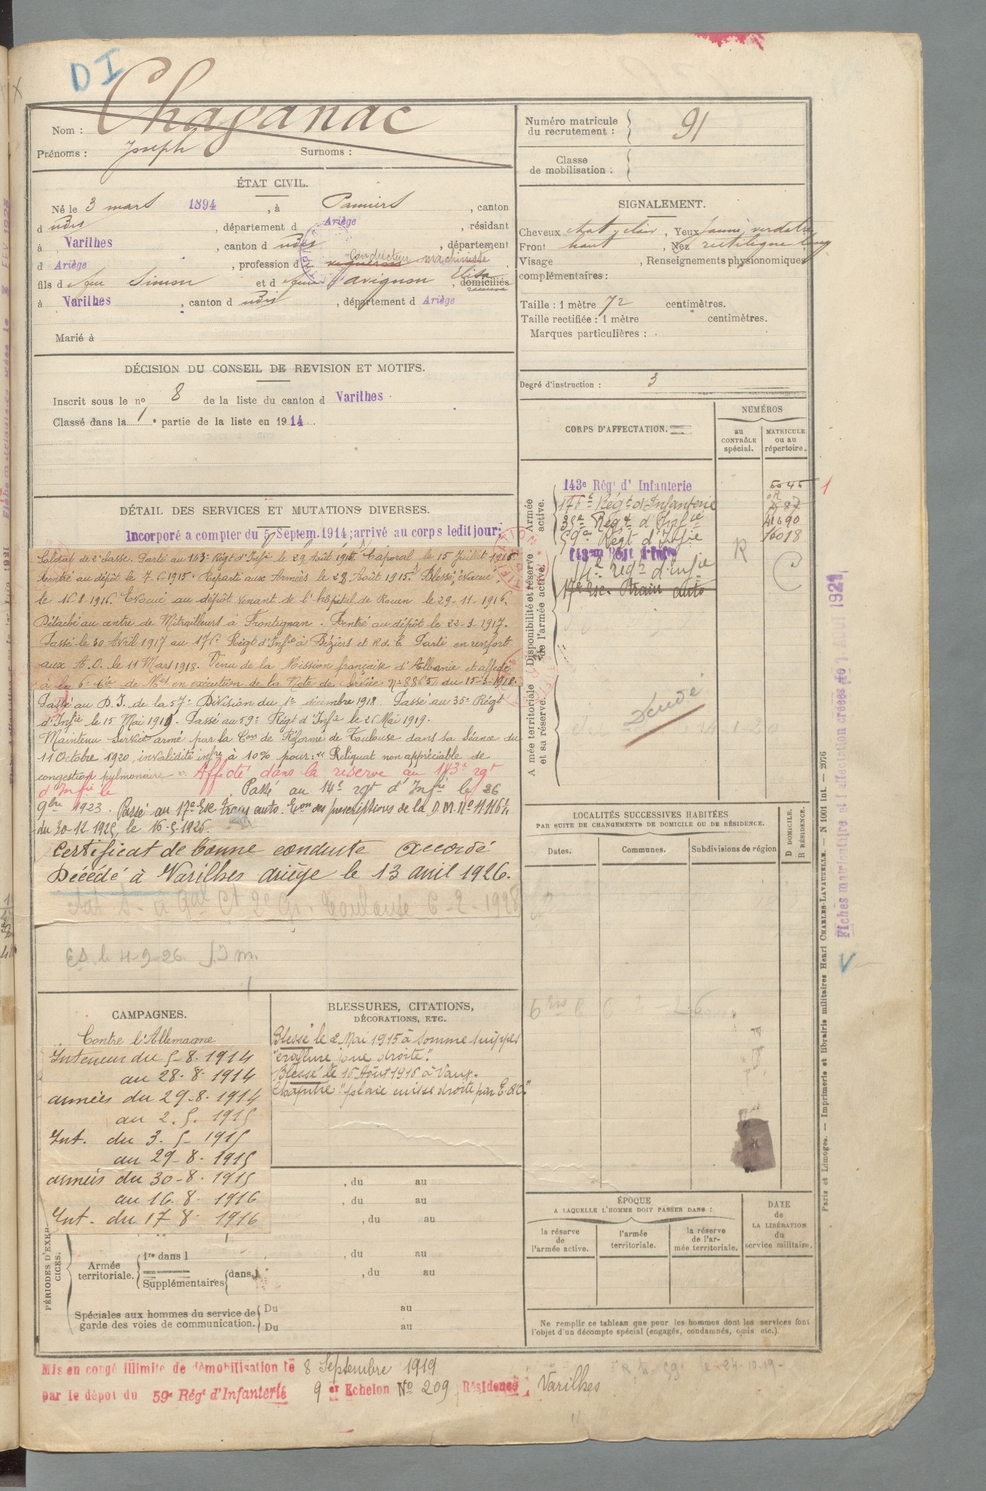 DI
Nom : Chapanac
Prénoms : Joseph Surnoms :
Numéro matricule du recrutement : 91
Classe de mobilisation :
ÉTAT CIVIL.
Né le 3 mars 1894, à Pamiers, canton
d udit, département d Ariège, résidant
à Varilhes, canton d udit, département
d Ariège, profession d Conducteur machiniste
fils d e feu Simon et d Savignon Elisa, domiciliés
à Varilhes, canton d udit, département d Ariège
Marié à
SIGNALEMENT.
Cheveux chat. clair, Yeux jaune verdâtre
Front haut, Nez rectiligne long
Visage , Renseignements physionomiques
complémentaires :
Taille : 1 mètre 72 centimètres.
Taille rectifiée : 1 mètre centimètres.
Marques particulières :
Degré d'instruction : 3
DÉCISION DU CONSEIL DE REVISION ET MOTIFS.
Inscrit sous le nº 8 de la liste du canton d Varilhes
Classé dans la 1 e partie de la liste en 1914.
CORPS D'AFFECTATION.
NUMÉROS
au CONTRÔLE spécial.
MATRICULE ou au répertoire.
Armée active.
Disponibilité et réserve de l'armée active.
Armée territoriale et sa réserve.
143e Régt d'Infanterie 5045 1
176e Régt d'Infanterie
35e Régt d'Infie
59e Régt d'Infie 16018
143me Régt d'Infie
14e Régt d'Infie
17e Esc. Train auto
R
C
Décédé
DÉTAIL DES SERVICES ET MUTATIONS DIVERSES.
Incorporé à compter du 5 Septem. 1914; arrivé au corps ledit jour;
Soldat de 2e classe. Parti au 143e Régt d'Infie le 29 Août 1914 Caporal le 15 Juillet 1916
Rentré au dépôt le 7.6.1915. Reparti aux Armées le 28 Août 1915. Blessé, évacué
le 16.8.1916. Evacué au dépôt venant de l'hôpital de Rouen le 29-11-1916.
Détaché au centre de Mitrailleurs à Frontignan. Rentré au dépôt le 22-3-1917.
Passé le 30 Avril 1917 au 176e Régt d'Infie à Béziers et R.d.C. Parti en renfort
aux A.O. le 11 Mars 1918. Venu de la Mission française d'Albanie et affecté
à la 6e Cie de Mes en exécution de la Note de Service nº 2865 du 15-3-1918.
Passé au D.I. de la 57e Division du 1er décembre 1918 Passé au 35e Régt
d'Infie le 15 Mai 1919. Passé au 59e Régt d'Infie le 26 Mai 1919.
Maintenu Service armé par la Con de Réforme de Toulouse dans sa séance du
11 Octobre 1920, invalidité infre à 10% pour: "Reliquat non appréciable de
congestion pulmonaire" Affecté dans la réserve au 143e rgt
d'Infie le Passé au 14e rgt d'Infie le 26
9bre 1923. Passé au 17e Esc. Train auto. Exon des prescriptions de la D.M. Nº 11464
du 30-12-1925, le 16-3-1926.
Certificat de bonne conduite accordé
Décédé à Varilhes ariège le 13 avril 1926.
LOCALITÉS SUCCESSIVES HABITÉES
PAR SUITE DE CHANGEMENTS DE DOMICILE OU DE RÉSIDENCE.
Dates. Communes. Subdivisions de région D DOMICILE. R RÉSIDENCE.
CAMPAGNES.
Contre l'Allemagne
Intérieur du 5-8-1914
au 28-8-1914
armées du 29-8-1914
au 2.5.1915
Int. du 3-5-1915
au 29-8-1915
armées du 30-8-1915
au 16.8.1916
Int. du 17-8-1916
BLESSURES, CITATIONS,
DÉCORATIONS, ETC.
Blessé le 2 Mai 1915 à Somme Suippes
"éraflure joue droite".
Blessé le 16 Août 1916 à Vaux-
Chapitre "plaie cuisse droite par E. O."
, du au
, du au
, du au
PÉRIODES D'EXERCICES.
Armée territoriale. 1re dans l , du au
Supplémentaires dans l , du au
Spéciales aux hommes du service de garde des voies de communication. Du au
Du au
ÉPOQUE
A LAQUELLE L'HOMME DOIT PASSER DANS :
la réserve de l'armée active.
l'armée territoriale.
la réserve de l'armée territoriale.
DATE de LA LIBÉRATION du service militaire.
Ne remplir ce tableau que pour les hommes dont les services font
l'objet d'un décompte spécial (engagés, condamnés, omis etc.).
Mis en congé illimité de démobilisation le 8 Septembre 1919
par le dépôt du 59e Régt d'Infanterie 9 er Echelon Nº 209, Résidence: Varilhes
Paris et Limoges. — Imprimerie et librairie militaires Henri CHARLES-LAVAUZELLE.